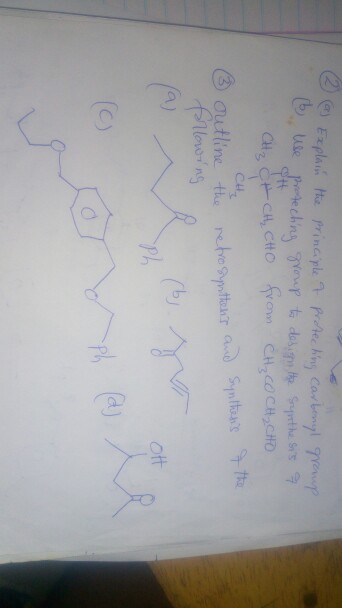 ② (a) Explain the principle of protecting carbonyl group
(b) Use protecting group to design the synthesis of
OH
CH3 CH-CH2 CHO from CH3COCH2CHO
CH3
③ Outline the retrosynthesis and synthesis of the
following
(a)
O
Ph
(b)
O
(c)
O
O
O
Ph
(d)
OH
O